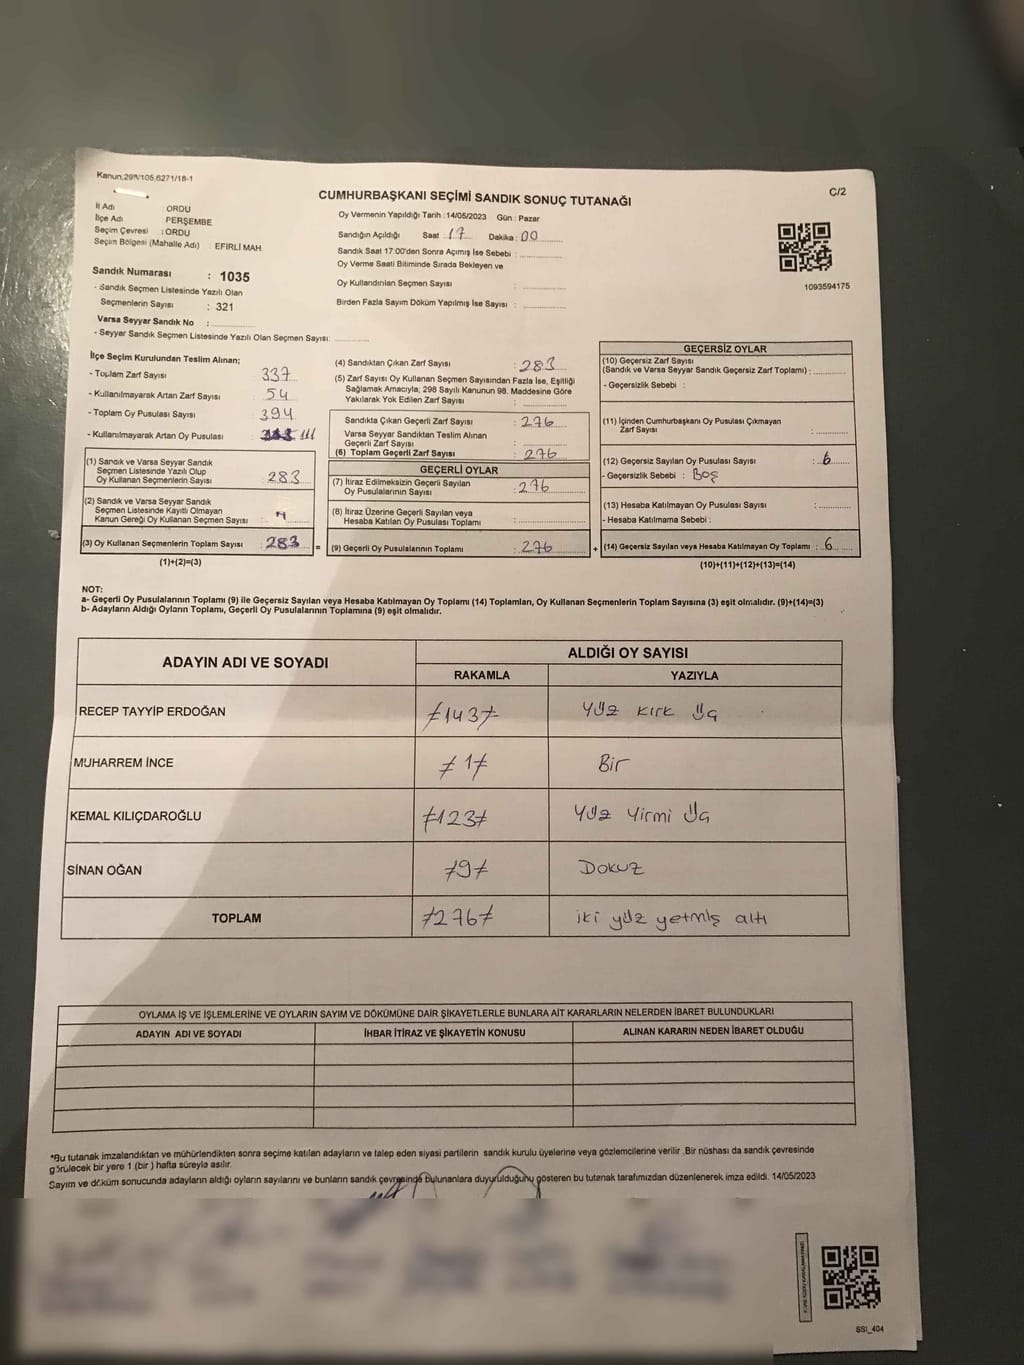 Kanun:298/105,6271/18-1
C/2
CUMHURBAŞKANI SEÇİMİ SANDIK SONUÇ TUTANAĞI
İl Adı ORDU
İlçe Adı PERŞEMBE
Seçim Çevresi : ORDU
Seçim Bölgesi (Mahalle Adı) : EFİRLİ MAH.
Sandık Numarası : 1035
- Sandık Seçmen Listesinde Yazılı Olan
Seçmenlerin Sayısı : 321
Varsa Seyyar Sandık No :
- Seyyar Sandık Seçmen Listesinde Yazılı Olan Seçmen Sayısı:
Oy Vermenin Yapıldığı Tarih : 14/05/2023 Gün : Pazar
Sandığın Açıldığı Saat : 17 Dakika : 00
Sandık Saat 17:00'den Sonra Açılmış İse Sebebi :
Oy Verme Saati Bitiminde Sırada Bekleyen ve
Oy Kullandırılan Seçmen Sayısı :
Birden Fazla Sayım Döküm Yapılmış İse Sayısı :
1093594175
İlçe Seçim Kurulundan Teslim Alınan;
- Toplam Zarf Sayısı : 337
- Kullanılmayarak Artan Zarf Sayısı : 54
- Toplam Oy Pusulası Sayısı : 394
- Kullanılmayarak Artan Oy Pusulası 111
(1) Sandık ve Varsa Seyyar Sandık
Seçmen Listesinde Yazılı Olup
Oy Kullanan Seçmenlerin Sayısı : 283
(2) Sandık ve Varsa Seyyar Sandık
Seçmen Listesinde Kayıtlı Olmayan
Kanun Gereği Oy Kullanan Seçmen Sayısı :
(3) Oy Kullanan Seçmenlerin Toplam Sayısı : 283
(1)+(2)=(3)
(4) Sandıktan Çıkan Zarf Sayısı : 283
(5) Zarf Sayısı Oy Kullanan Seçmen Sayısından Fazla İse, Eşitliği
Sağlamak Amacıyla; 298 Sayılı Kanunun 98. Maddesine Göre
Yakılarak Yok Edilen Zarf Sayısı :
Sandıkta Çıkan Geçerli Zarf Sayısı : 276
Varsa Seyyar Sandıktan Teslim Alınan
Geçerli Zarf Sayısı :
(6) Toplam Geçerli Zarf Sayısı : 276
GEÇERLİ OYLAR
(7) İtiraz Edilmeksizin Geçerli Sayılan
Oy Pusulalarının Sayısı : 276
(8) İtiraz Üzerine Geçerli Sayılan veya
Hesaba Katılan Oy Pusulası Toplamı :
= (9) Geçerli Oy Pusulalarının Toplamı : 276
GEÇERSİZ OYLAR
(10) Geçersiz Zarf Sayısı
(Sandık ve Varsa Seyyar Sandık Geçersiz Zarf Toplamı) :
- Geçersizlik Sebebi :
(11) İçinden Cumhurbaşkanı Oy Pusulası Çıkmayan
Zarf Sayısı :
(12) Geçersiz Sayılan Oy Pusulası Sayısı : 6
- Geçersizlik Sebebi : Boş
(13) Hesaba Katılmayan Oy Pusulası Sayısı :
- Hesaba Katılmama Sebebi :
+ (14) Geçersiz Sayılan veya Hesaba Katılmayan Oy Toplamı : 6
(10)+(11)+(12)+(13)=(14)
NOT:
a- Geçerli Oy Pusulalarının Toplamı (9) ile Geçersiz Sayılan veya Hesaba Katılmayan Oy Toplamı (14) Toplamları, Oy Kullanan Seçmenlerin Toplam Sayısına (3) eşit olmalıdır. (9)+(14)=(3)
b- Adayların Aldığı Oyların Toplamı, Geçerli Oy Pusulalarının Toplamına (9) eşit olmalıdır.
ADAYIN ADI VE SOYADI ALDIĞI OY SAYISI
RAKAMLA YAZIYLA
RECEP TAYYİP ERDOĞAN ≠143≠ Yüz kırk üç
MUHARREM İNCE ≠1≠ Bir
KEMAL KILIÇDAROĞLU ≠123≠ Yüz Yirmi üç
SİNAN OĞAN ≠9≠ Dokuz
TOPLAM ≠276≠ iki yüz yetmiş altı
OYLAMA İŞ VE İŞLEMLERİNE VE OYLARIN SAYIM VE DÖKÜMÜNE DAİR ŞİKAYETLERLE BUNLARA AİT KARARLARIN NELERDEN İBARET BULUNDUKLARI
ADAYIN ADI VE SOYADI İHBAR İTİRAZ VE ŞİKAYETİN KONUSU ALINAN KARARIN NEDEN İBARET OLDUĞU
*Bu tutanak imzalandıktan ve mühürlendikten sonra seçime katılan adayların ve talep eden siyasi partilerin sandık kurulu üyelerine veya gözlemcilerine verilir. Bir nüshası da sandık çevresinde
görülecek bir yere 1 (bir) hafta süreyle asılır.
Sayım ve döküm sonucunda adayların aldığı oyların sayılarını ve bunların sandık çevresinde bulunanlara duyurulduğunu gösteren bu tutanak tarafımızdan düzenlenerek imza edildi. 14/05/2023
SSI_404